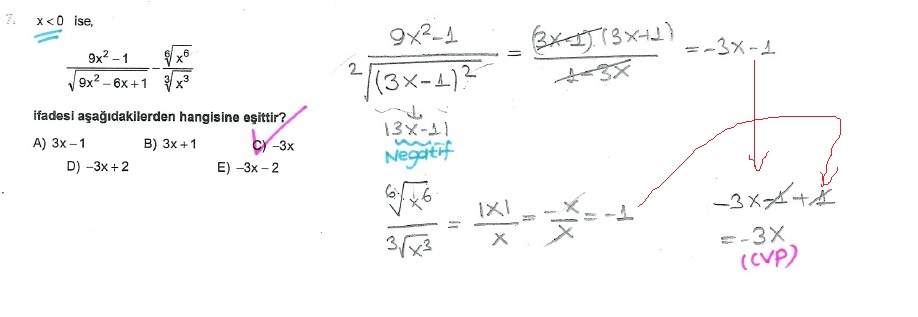 7. x < 0 ise,
9x² − 1 / √(9x² − 6x + 1) − ⁶√(x⁶) / ³√(x³)
ifadesi aşağıdakilerden hangisine eşittir?
A) 3x − 1 B) 3x + 1 C) −3x
D) −3x + 2 E) −3x − 2
9x² − 1 / ²√((3x − 1)²) = (3x − 1).(3x + 1) / 1 − 3x = −3x − 1
|3x − 1|
Negatif
⁶√(x⁶) / ³√(x³) = |x| / x = −x / x = −1
−3x − 1 + 1
= −3x
(CVP)